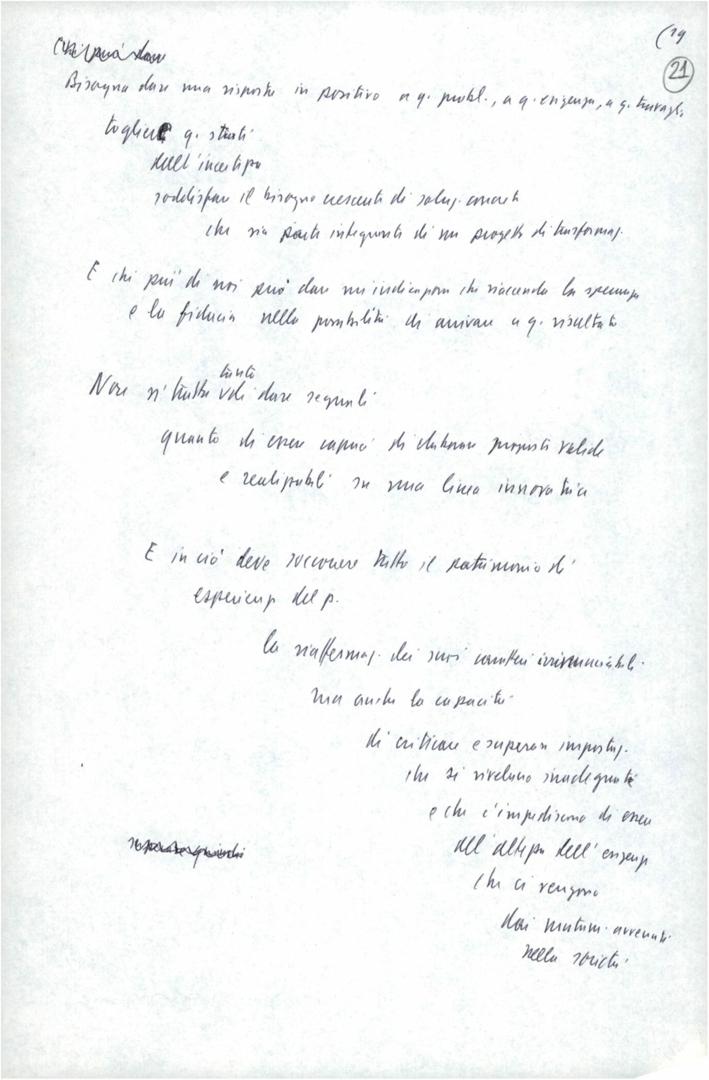 (19
21
Chi può dare
Bisogna dare una risposta in positivo a q. probl., a q. esigenze, a q. travagli
togliere q. stati
dall'incertezza
soddisfare il bisogno crescente di soluz. concrete
che sia parte integrante di un progetto di trasformaz.
E chi più di noi può dare un'indicazione che riaccenda la speranza
e la fiducia nella possibilità di arrivare a q. risultato
tanto
Non si tratta di dare segnali
quanto di essere capaci di elaborare proposte valide
e realizzabili su una linea innovativa
E in ciò deve soccorrere tutto il patrimonio di
esperienz del p.
la riaffermaz. dei suoi caratteri irrinunciabili
ma anche la capacità
di criticare e superare impostaz.
che si rivelano inadeguate
e che c'impediscono di essere
all'altezza dell'esigenze
che ci vengono
dai mutam. avvenuti
nella società